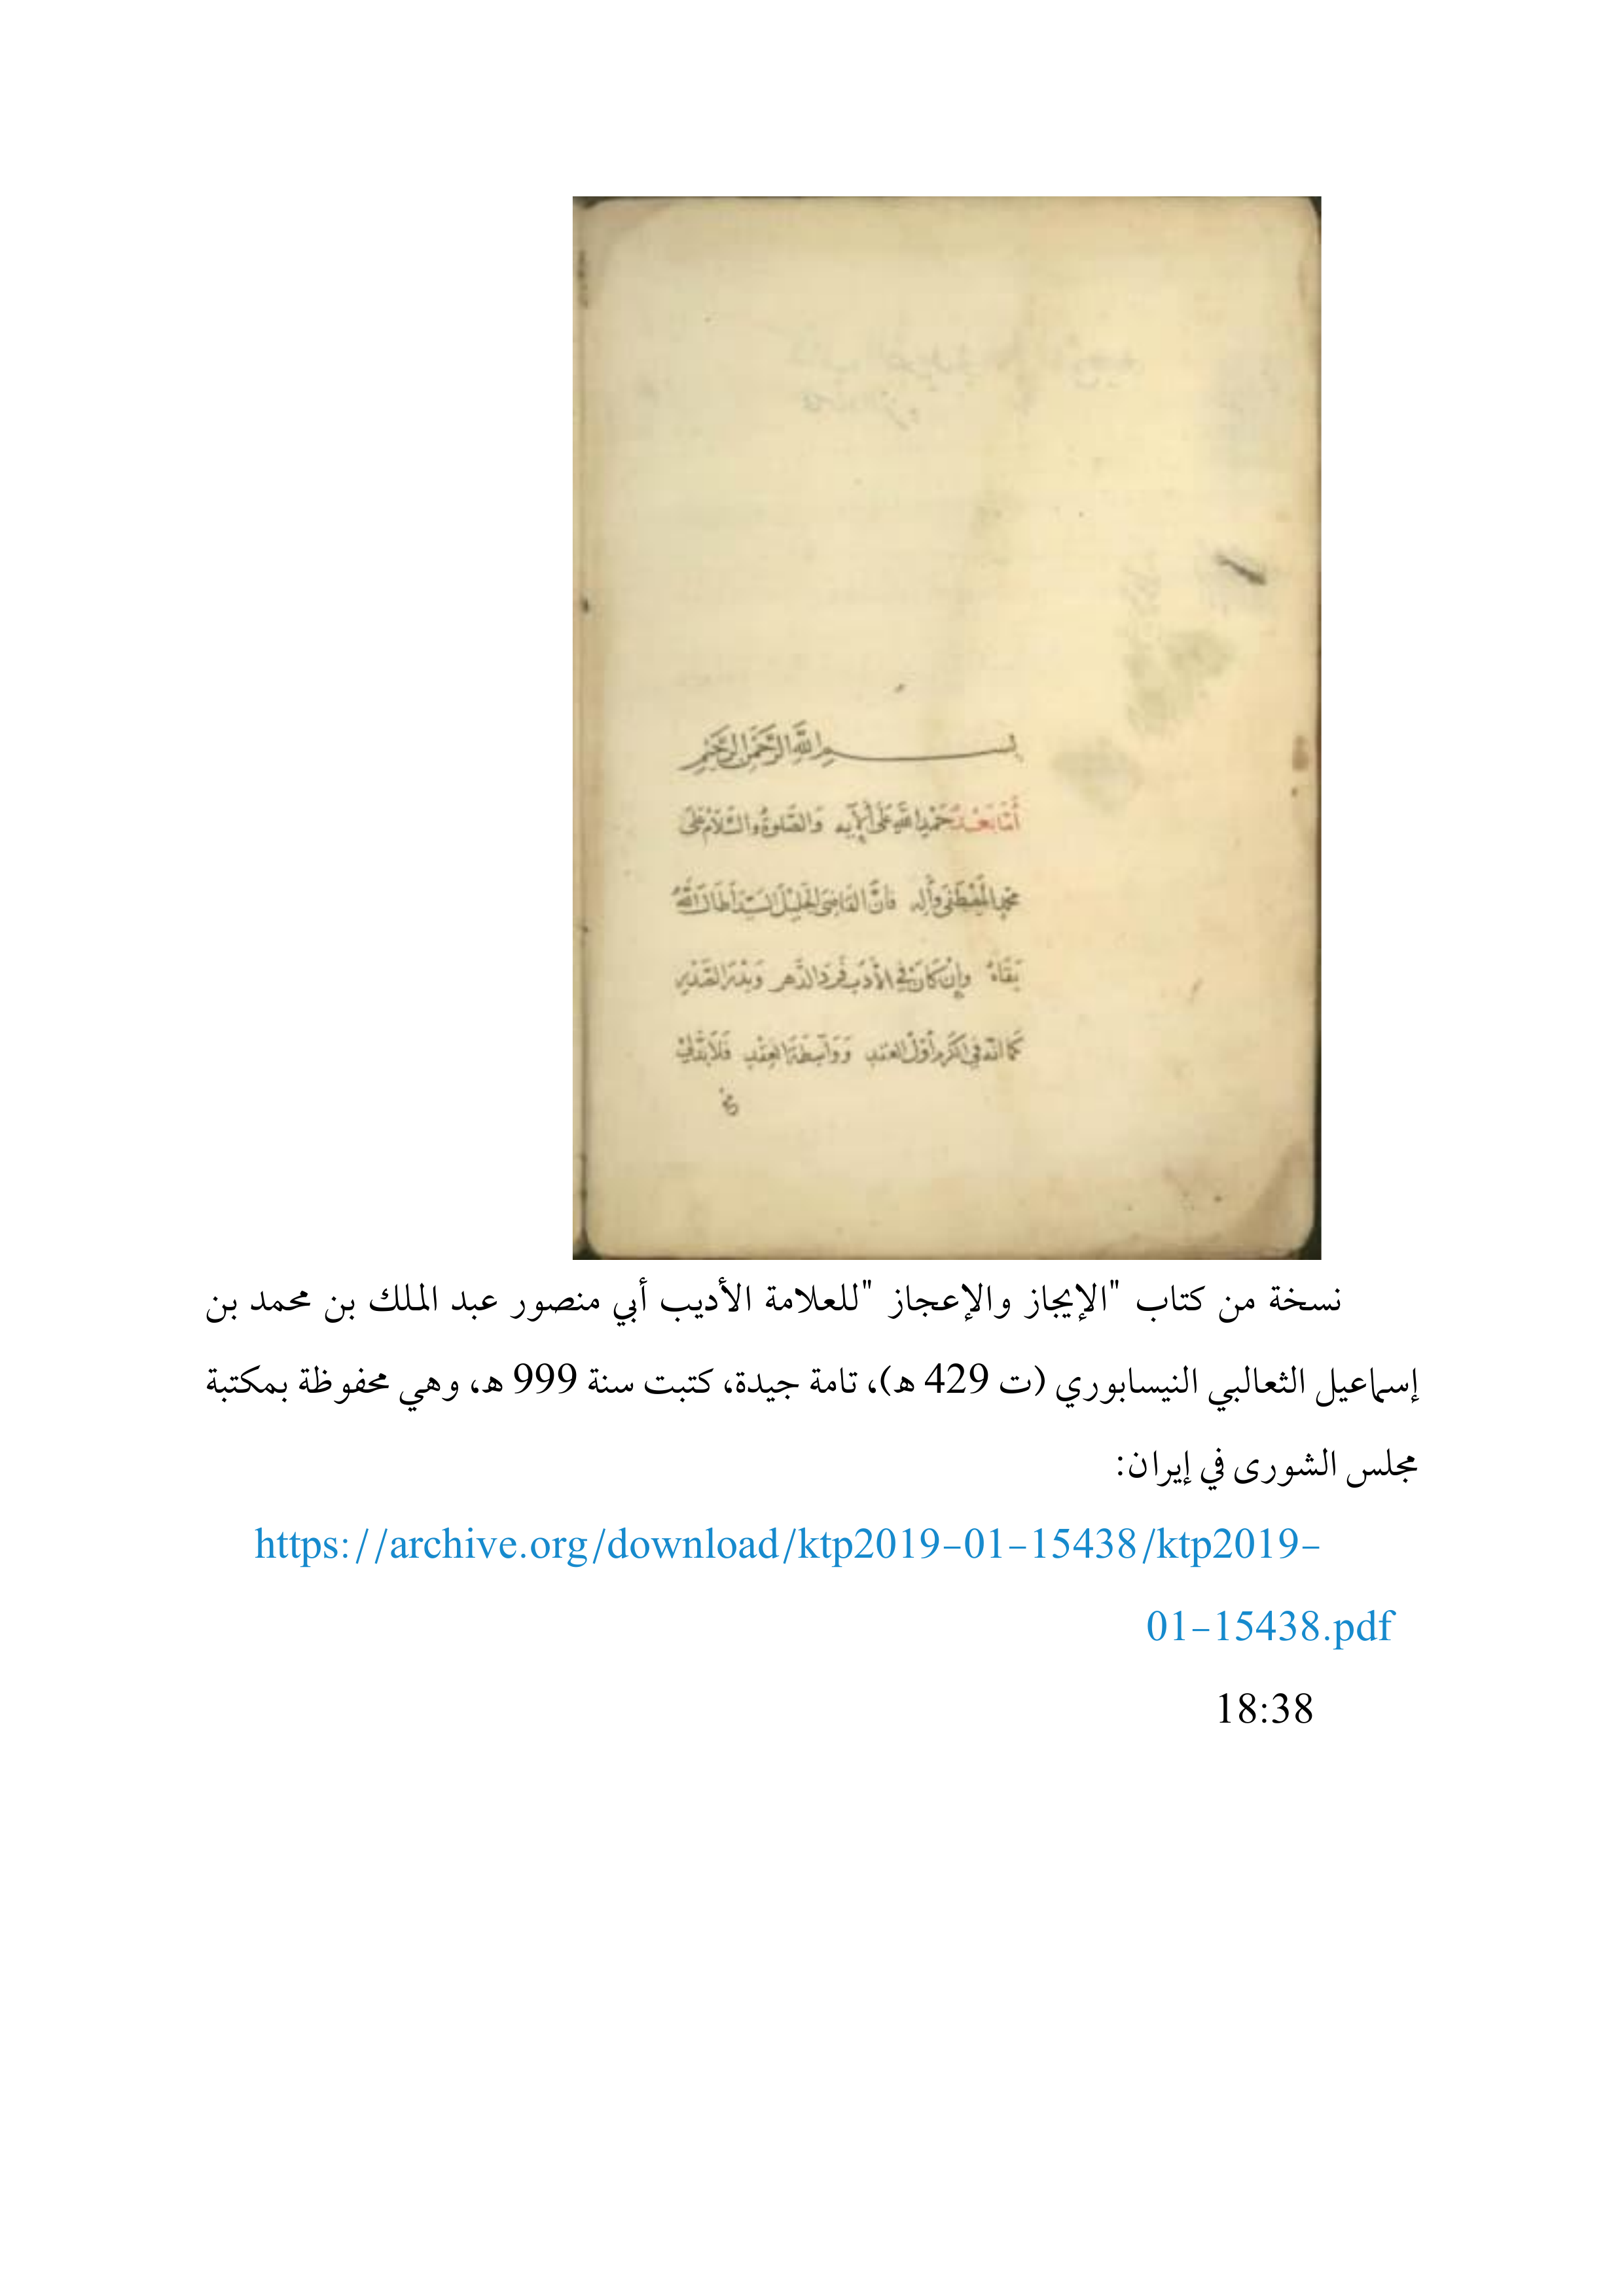 بسم الله الرحمن الرحيم
أما بعد حمد الله على آلائه والصلوة والسلام على
محمد المصطفى وآله فان القاضى الجليل السيد أطال الله
بقاه وإن كان في الأدب فرد الدهر وبدر الصدر
كما انه في الكرم أول العقد وواسطة العقد فلا بد
نسخة من كتاب "الإيجاز والإعجاز "للعلامة الأديب أبي منصور عبد الملك بن محمد بن
إسماعيل الثعالبي النيسابوري (ت 429 ه)، تامة جيدة، كتبت سنة 999 ه، وهي محفوظة بمكتبة
مجلس الشورى في إيران:
https://archive.org/download/ktp2019-01-15438/ktp2019-
01-15438.pdf
18:38